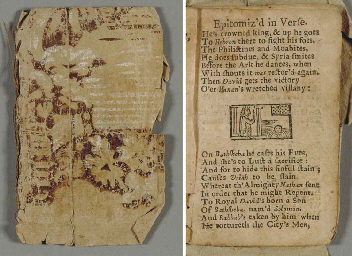 Epitomiz'd in Verse.
He's crowned king, & up he goes
To Hebron there to fight his foes.
The Philistins and Moabites,
He does subdue, & Syria smites
Before the Ark he dances, when
With shouts it was restor'd again.
Then David gets the victory
O'er Hanun's wretched villany:
On Bathsheba he casts his Eyes,
And he's to Lust a sacrifice:
And for to hide this sinful stain;
Causes Uriah to be slain.
Whereat th' Almighty Nathan sent
In order that he might Repent.
To Royal David's born a Son
Of Bathsheba, nam'd Solomon
And Rabbah's taken by him when
He tortureth the City's Men,